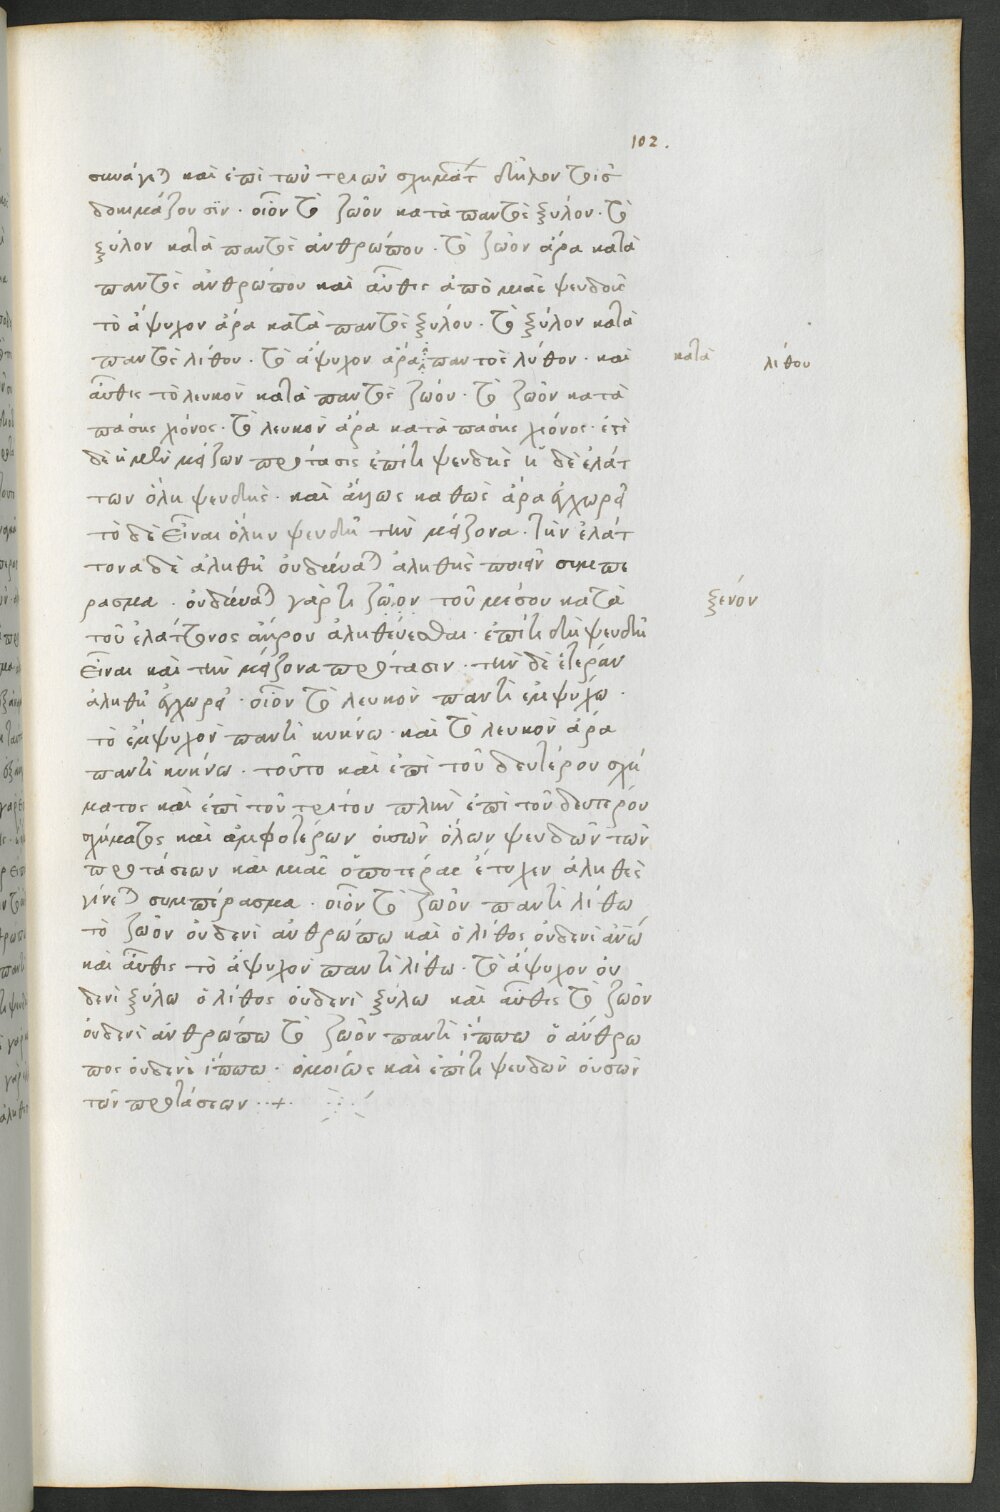 102.
συνάγε) καὶ ἐπὶ τῶν τριῶν σχημάτ δῆλον τοῖσ
δοκιμάζουσϊν · οἷον τὸ ζῶον κατὰ παντὸς ξύλου · τὸ
ξύλον κατὰ παντὸς ἀνθρώπου · τὸ ζῶον ἄρα κατὰ
παντὸς ἀνθρώπου καὶ αὖθις ἀπὸ μιᾶς ψευδοῦς
τὸ ἄψυχον ἄρα κατὰ παντὸς ξύλου · τὸ ξύλον κατὰ
παντὸς λίθου · τὸ ἄψυχον ἄρα παντὸς λύθον · καὶ
κατὰ λίθου
αὖθις τὸ λευκὸν κατὰ παντὸς ζώου · τὸ ζῶον κατὰ
πάσης χιόνος · τὸ λευκὸν ἄρα κατὰ πάσης χιόνος · ἔτι
δὲ ἡ μὲν μείζων πρότασις ἐπίτι ψευδὴς ἡ δὲ ἐλάτ
των ὅλη ψευδής · καὶ ἄλλως καθὼς ἄρα ἐγχωρεῖ
τὸ δὲ εἶναι ὅλην ψευδῆ τὴν μείζονα · τὴν ἐλάτ
τονα δὲ ἀληθῆ οὐ δύνα) ἀληθὲς ποιεῖν συμπέ
ρασμα · οὐ δύνα) γάρ τι ζῶον τοῦ μέσου κατὰ
ξενόν
τοῦ ἐλάττονος ἄκρου ἀληθεύεσθαι · ἐπίτι δὴ ψευδῆ
εἶναι καὶ τὴν μείζονα πρότασιν · τὴν δὲ ἑτέραν
ἀληθῆ ἐγχωρεῖ · οἷον τὸ λευκὸν παντὶ ἐμψύχω ·
τὸ ἔμψυχον παντὶ κύκνω · καὶ τὸ λευκὸν ἄρα
παντὶ κύκνω · τοῦτο καὶ ἐπὶ τοῦ δευτέρου σχή
ματος καὶ ἐπὶ τοῦ τρίτου πλὴν ἐπὶ τοῦ δευτέρου
σχήματος καὶ ἀμφοτέρων οὐσῶν ὅλων ψευδῶν τῶν
προτάσεων καὶ μιᾶς ὁποτέρας ἔτυχεν ἀληθὲς
γίνε) συμπέρασμα · οἷον τὸ ζῶον παντὶ λίθω
τὸ ζῶον οὐδενὶ ἀνθρώπω καὶ ὁ λίθος οὐδενὶ ἀνω
καὶ αὖθις τὸ ἄψυχον παντὶ λίθω · τὸ ἄψυχον οὐ
δενὶ ξύλω ὁ λίθος οὐδενὶ ξύλω καὶ αὖθις τὸ ζῶον
οὐδενὶ ἀνθρώπω τὸ ζῶον παντὶ ἵππω ὁ ἄνθρω
πος οὐδενὶ ἵππω · ὁμοίως καὶ ἐπίτι ψευδῶν οὐσῶν
τῶν προτάσεων · · +